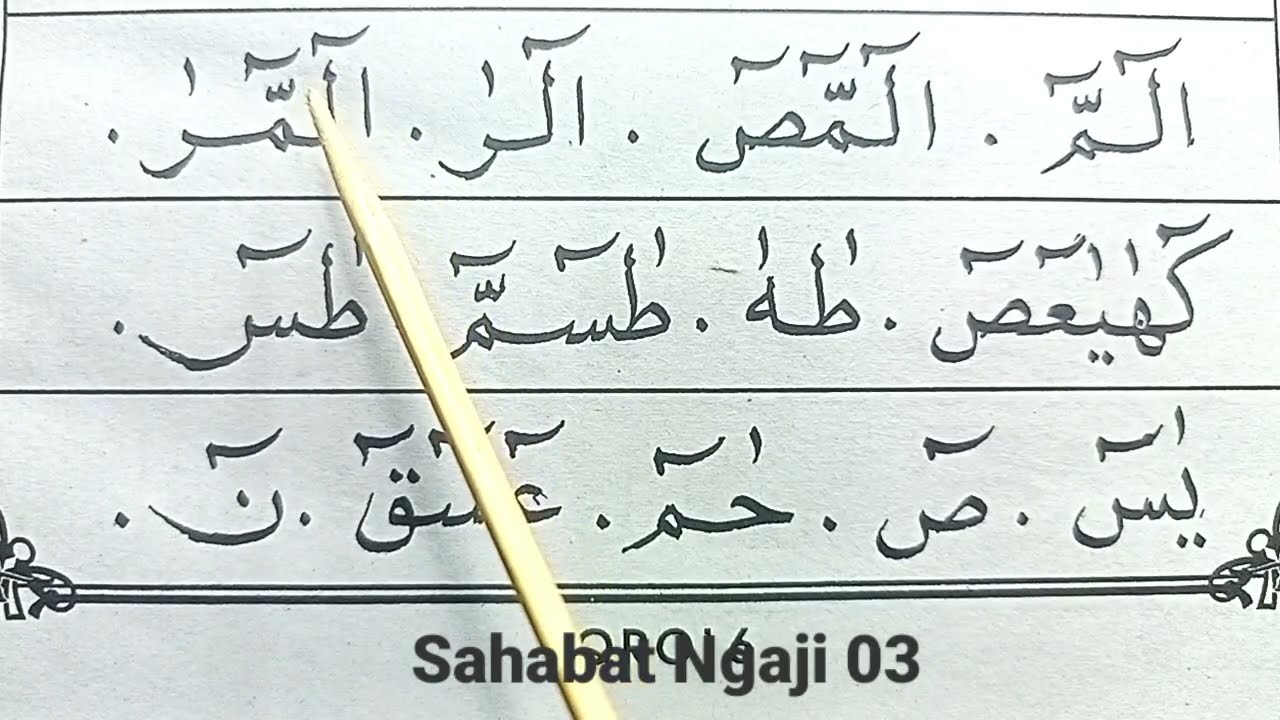 الٓمّٓ . الٓمّٓصٓ . الٓرٰ . الٓمّٓرٰ .
كٓهٰيٰعٓصٓ . طٰهٰ . طٰسٓمّٓ طٰسٓ .
يٰسٓ . صٓ . حٰمٓ . عٓسٓقٓ . نٓ .
Sahabat Ngaji 03